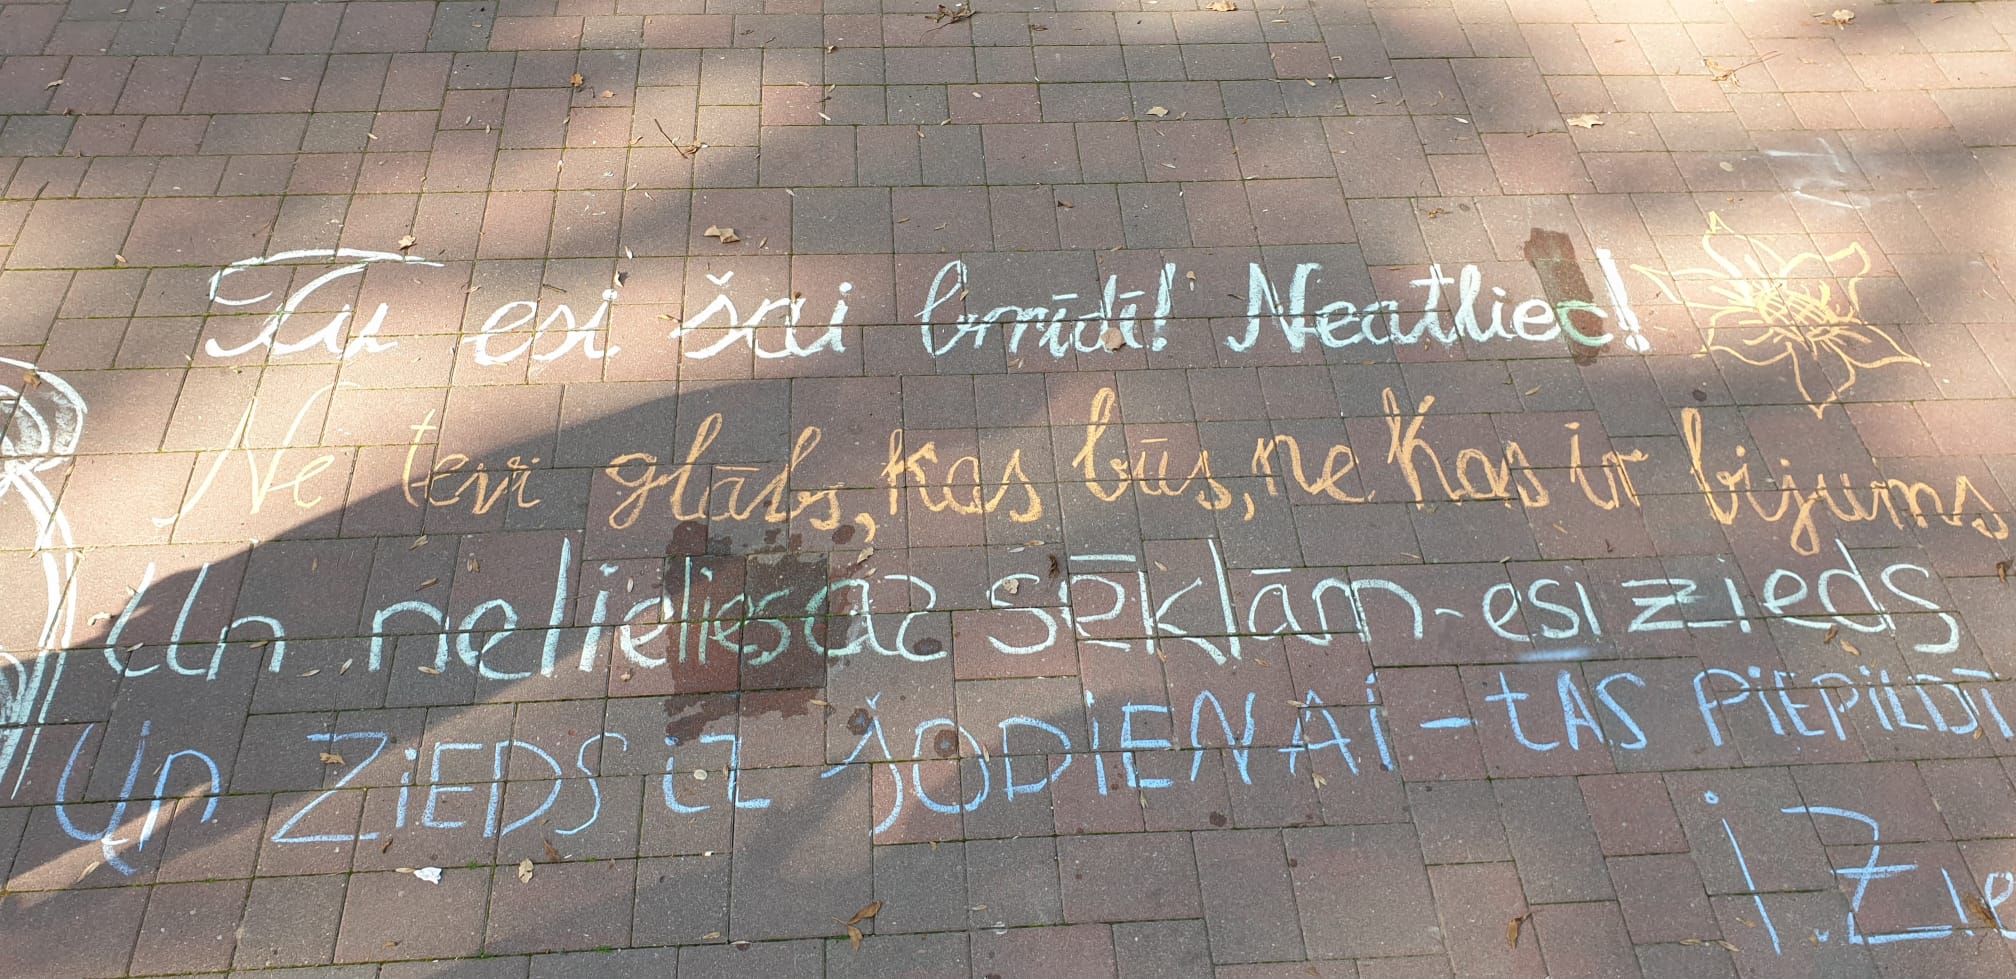 Tu esi šai brīdī! Neatliec!
Ne tevi glābs, kas būs, ne kas ir bijums
Un nelielies az sēklām - esi zieds
Un ZiEDS iZ ŠODIENAi - tAS PiEPiLDĪ
I. Zie